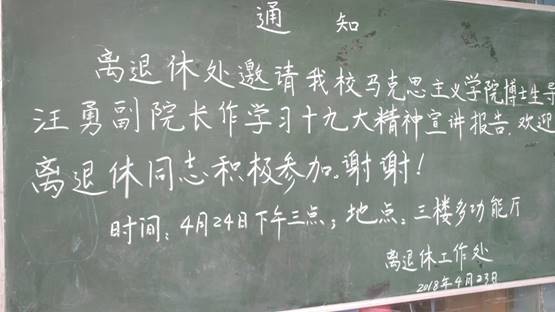 通 知
离退休处邀请我校马克思主义学院博士生导
汪勇副院长作学习十九大精神宣讲报告,欢迎
离退休同志积极参加。谢谢!
时间:4月24日下午三点;地点:三楼多功能厅
离退休工作处
2018年4月23日